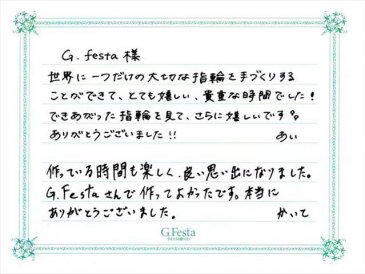 G. festa 様
世界に一つだけの大切な指輪を手づくりする
ことができて、とても嬉しい、貴重な時間でした!
できあがった指輪を見て、さらに嬉しいです♡。
ありがとうございました!! あい
作っている時間も楽しく、良い思い出になりました。
G.Festaさんで作ってよかったです。本当に
ありがとうございました。 かいて
G.Festa